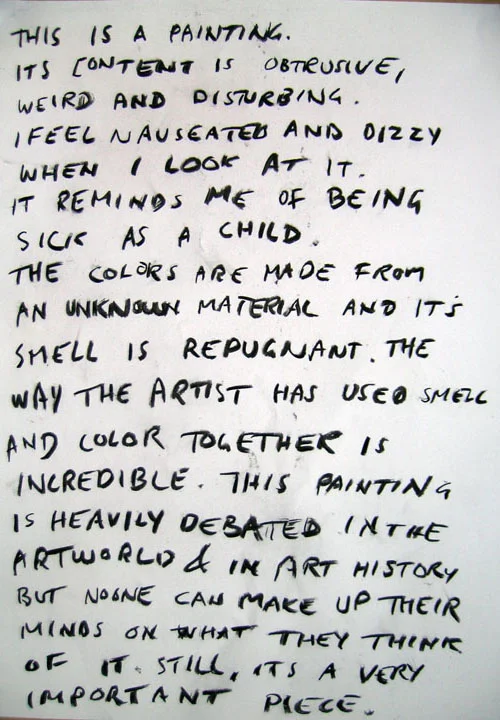 THIS IS A PAINTING.
ITS CONTENT IS OBTRUSIVE,
WEIRD AND DISTURBING.
I FEEL NAUSEATED AND DIZZY
WHEN I LOOK AT IT.
IT REMINDS ME OF BEING
SICK AS A CHILD.
THE COLORS ARE MADE FROM
AN UNKNOWN MATERIAL AND IT'S
SMELL IS REPUGNANT. THE
WAY THE ARTIST HAS USED SMELL
AND COLOR TOGETHER IS
INCREDIBLE. THIS PAINTING
IS HEAVILY DEBATED IN THE
ARTWORLD & IN ART HISTORY
BUT NOONE CAN MAKE UP THEIR
MINDS ON WHAT THEY THINK
OF IT. STILL, ITS A VERY
IMPORTANT PIECE.